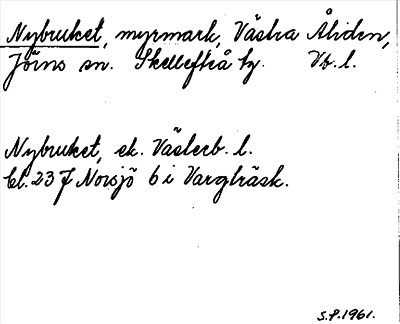 Nybruket, myrmark, Västra Åliden,
Jörns sn. Skellefteå tg. Vb. l.
Nybruket, ek. Västerb. l.
Bl. 23 J Norsjö 6 i Vargträsk.
S.P. 1961.